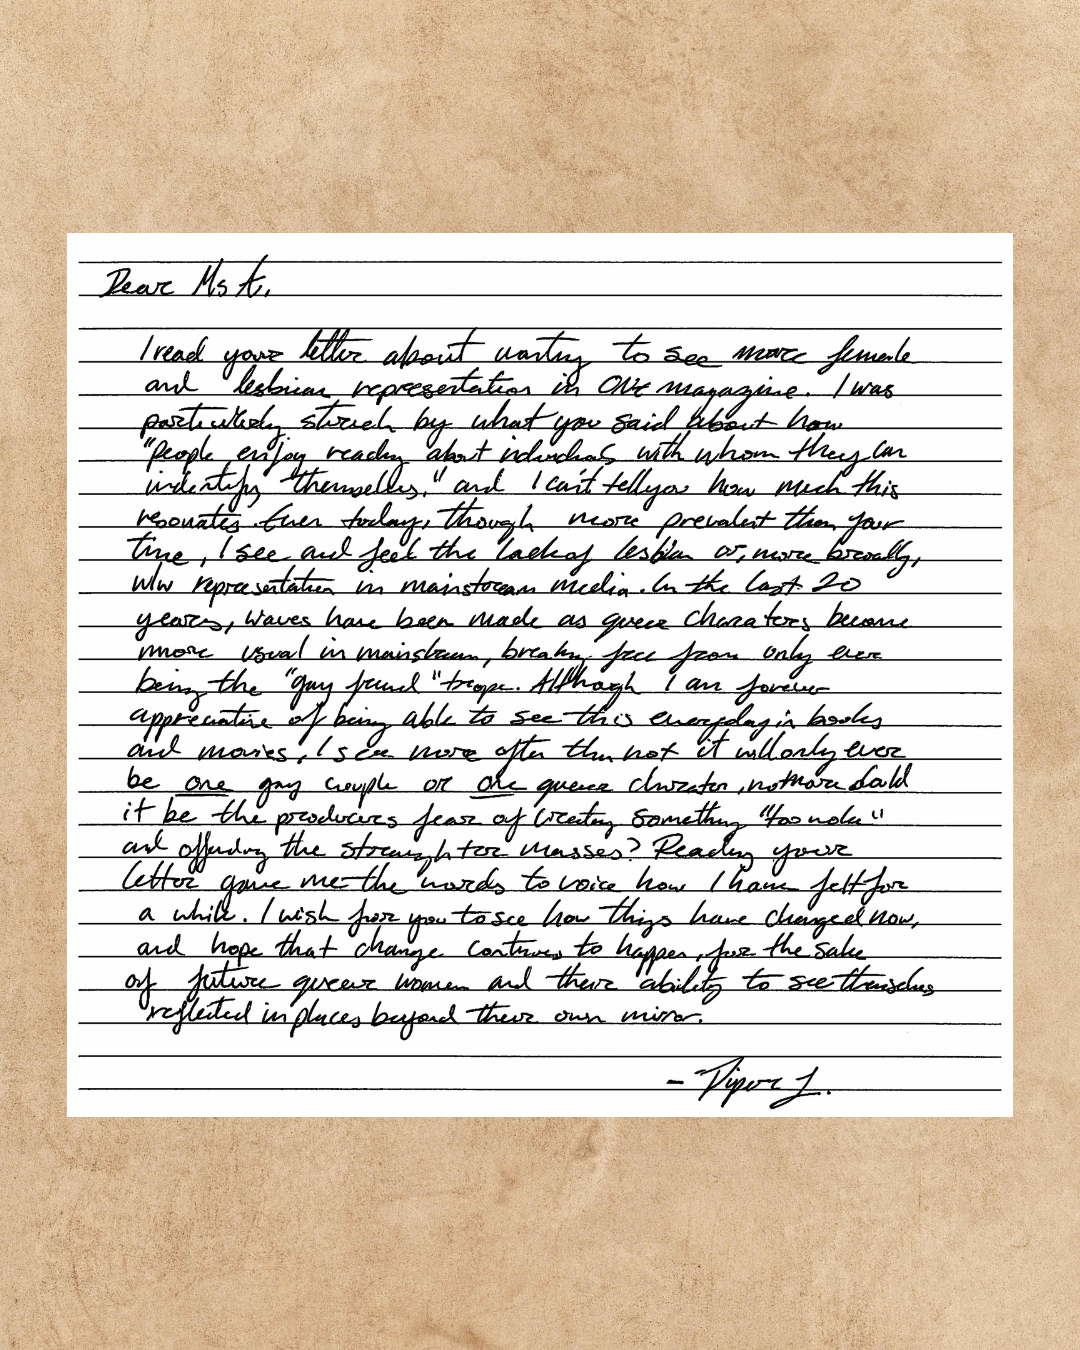 Dear Ms A.,
I read your letter about wanting to see more female
and lesbian representation in ONE magazine. I was
particularly struck by what you said about how
"people enjoy reading about individuals with whom they can
indentify themselves," and I can't tell you how much this
resonates. Even today, though more prevalent than your
time, I see and feel the lack of lesbian or, more broadly,
wlw representation in mainstream media. In the last 20
years, waves have been made as queer characters become
more usual in mainstream, breaking free from only ever
being the "gay friend" trope. Although I am forever
appreciative of being able to see this everyday in books
and movies, I see more often than not it will only ever
be one gay couple or one queer character, no more. Could
it be the producers fear of creating something "too woke"
and offending the straighter masses? Reading your
letter gave me the words to voice how I have felt for
a while. I wish for you to see how things have changed now,
and hope that change continues to happen, for the sake
of future queer women and their ability to see themselves
reflected in places beyond their own mirror.
- Piper L.